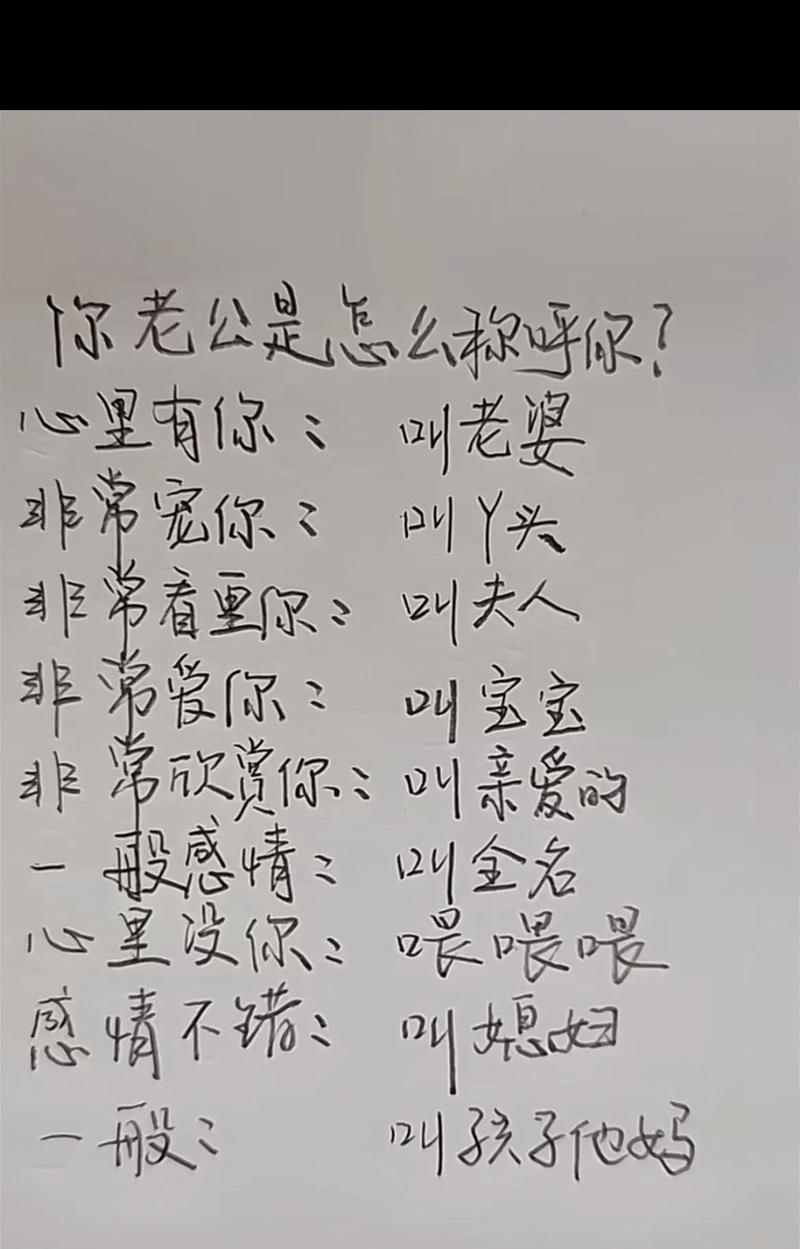 你老公是怎么称呼你?
心里有你: 叫老婆
非常宠你: 叫丫头
非常看重你: 叫夫人
非常爱你: 叫宝宝
非常欣赏你: 叫亲爱的
一般感情: 叫全名
心里没你: 喂喂喂
感情不错: 叫媳妇
一般: 叫孩子他妈